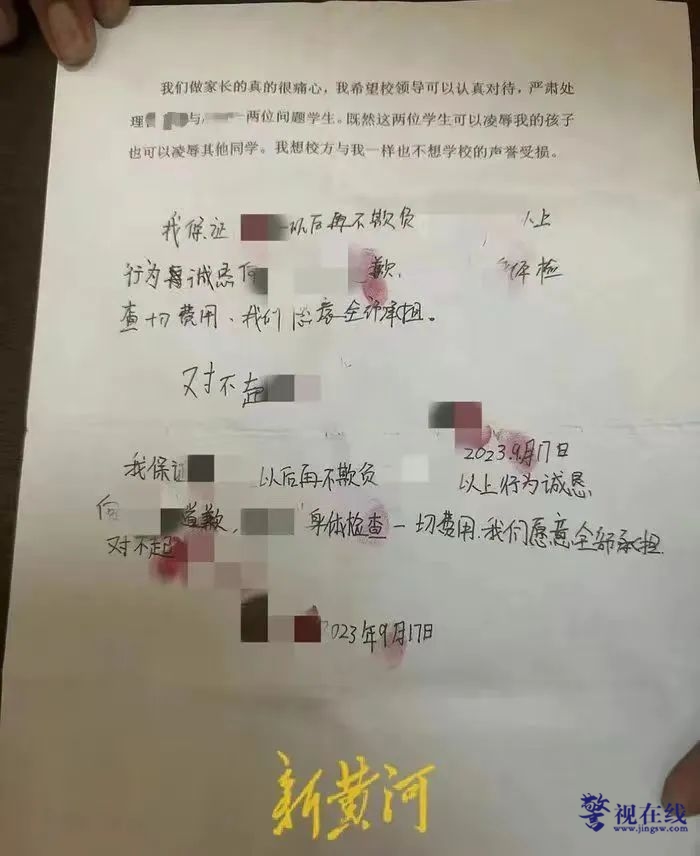 我们做家长的真的很痛心，我希望校领导可以认真对待，严肃处
理 与 一两位问题学生。既然这两位学生可以凌辱我的孩子
也可以凌辱其他同学。我想校方与我一样也不想学校的声誉受损。
我保证 以后再不欺负 以上
行为 诚恳向 歉, 体检
查一切费用、我们愿意全部承担。
对不起
2023.9月17日
我保证 以后再不欺负 以上行为诚恳
向 道歉, 身体检查一切费用.我们愿意全部承担.
对不起
2023年9月17日
新黄河
警视在线
www.jingsw.com